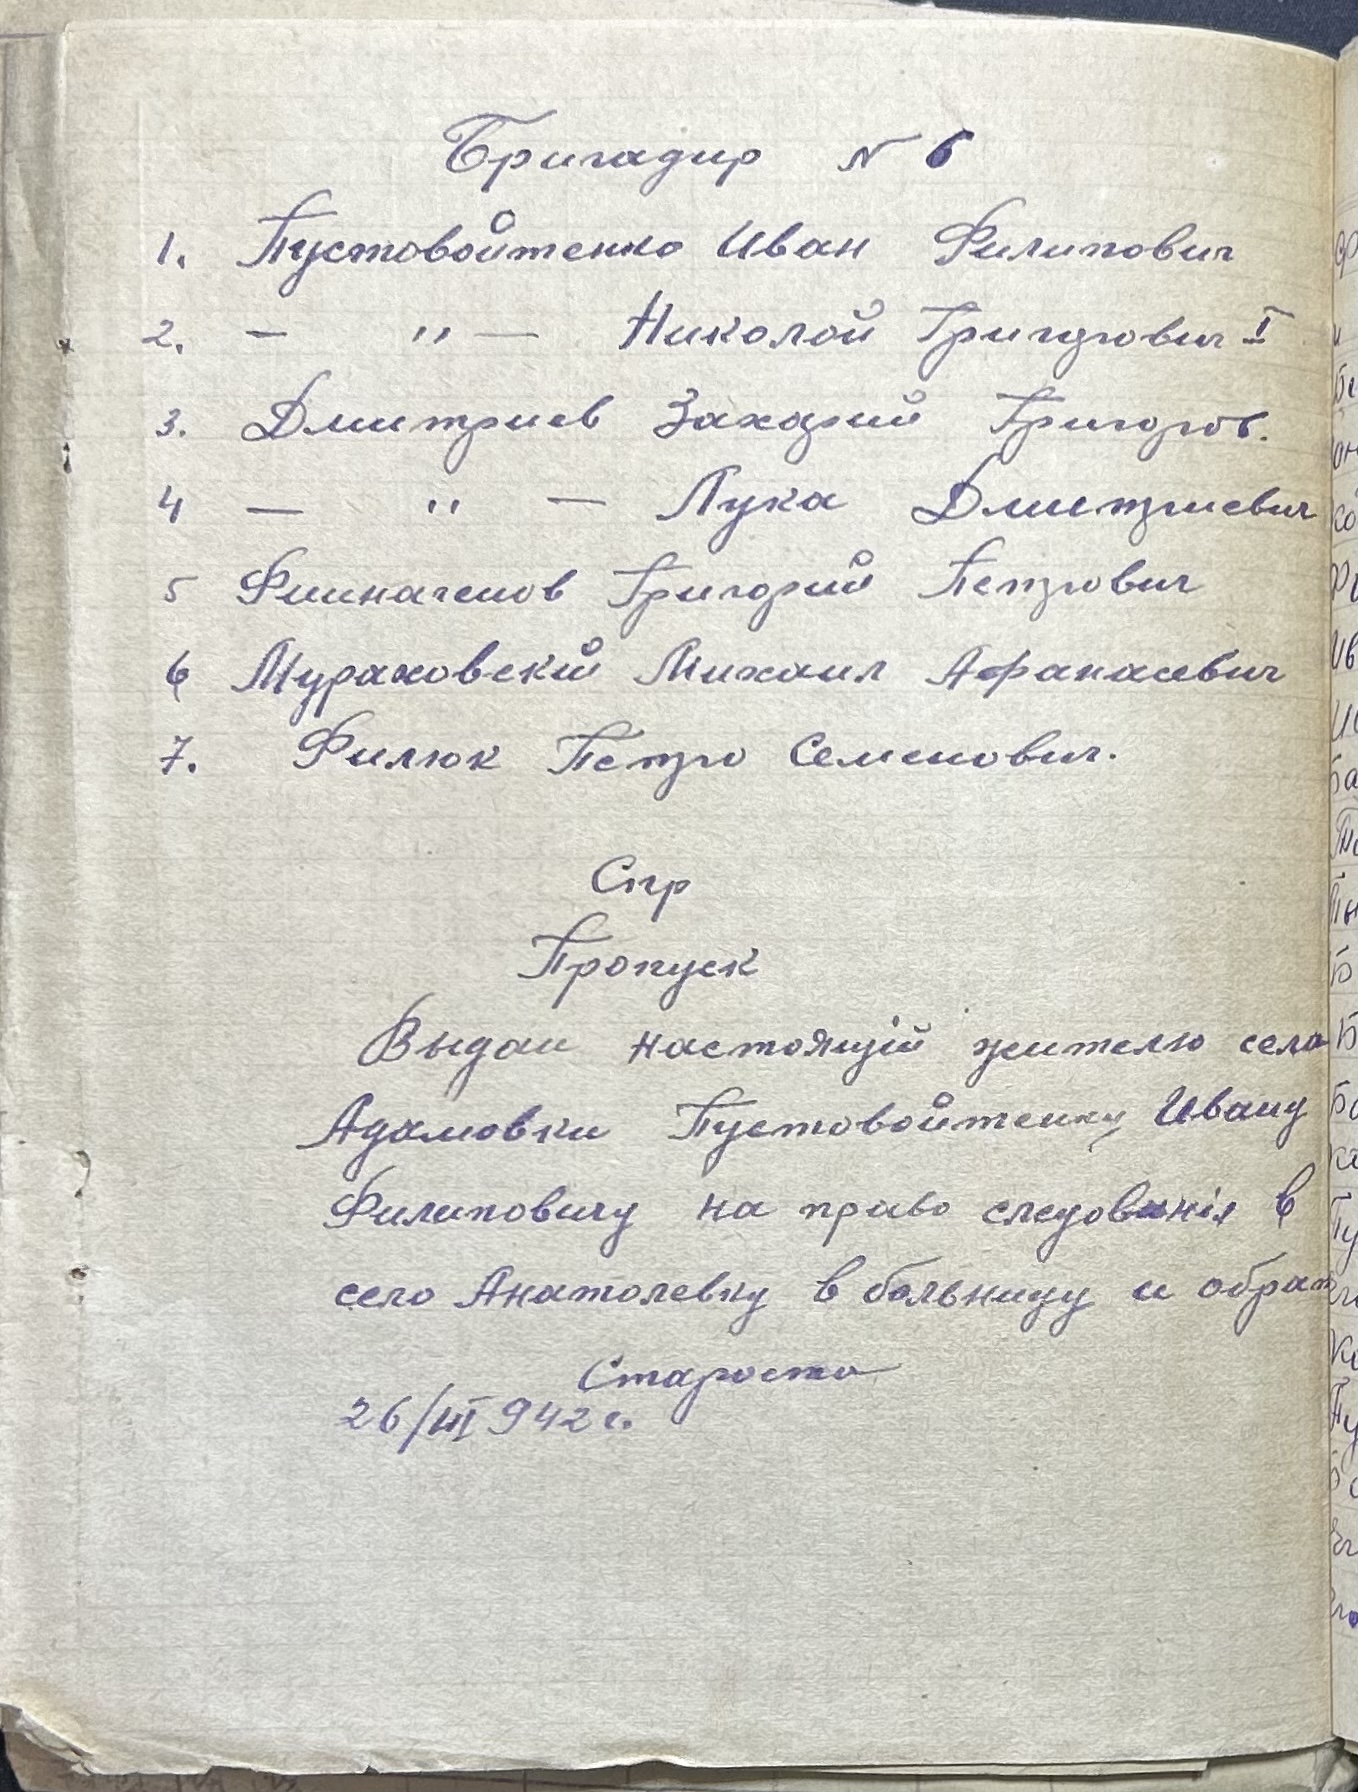 Бригадир N 6
1. Пустовойтенко Иван Филипович
2. — " — Николой Григорович I
3. Дмитриев Захарий Григоров.
4 — " — Лука Дмитриевич
5 Григорий Петрович
6 Мураховскій Михаил Афанасевич
7. Филюк Петро Семенович.
Спр
Пропуск
Выдан настоящій жителю села
Адамовки Пустовойтенку Ивану
Филиповичу на право следованія в
село Анатолевку в больницу и обрат
Староста
26/III 942 г.